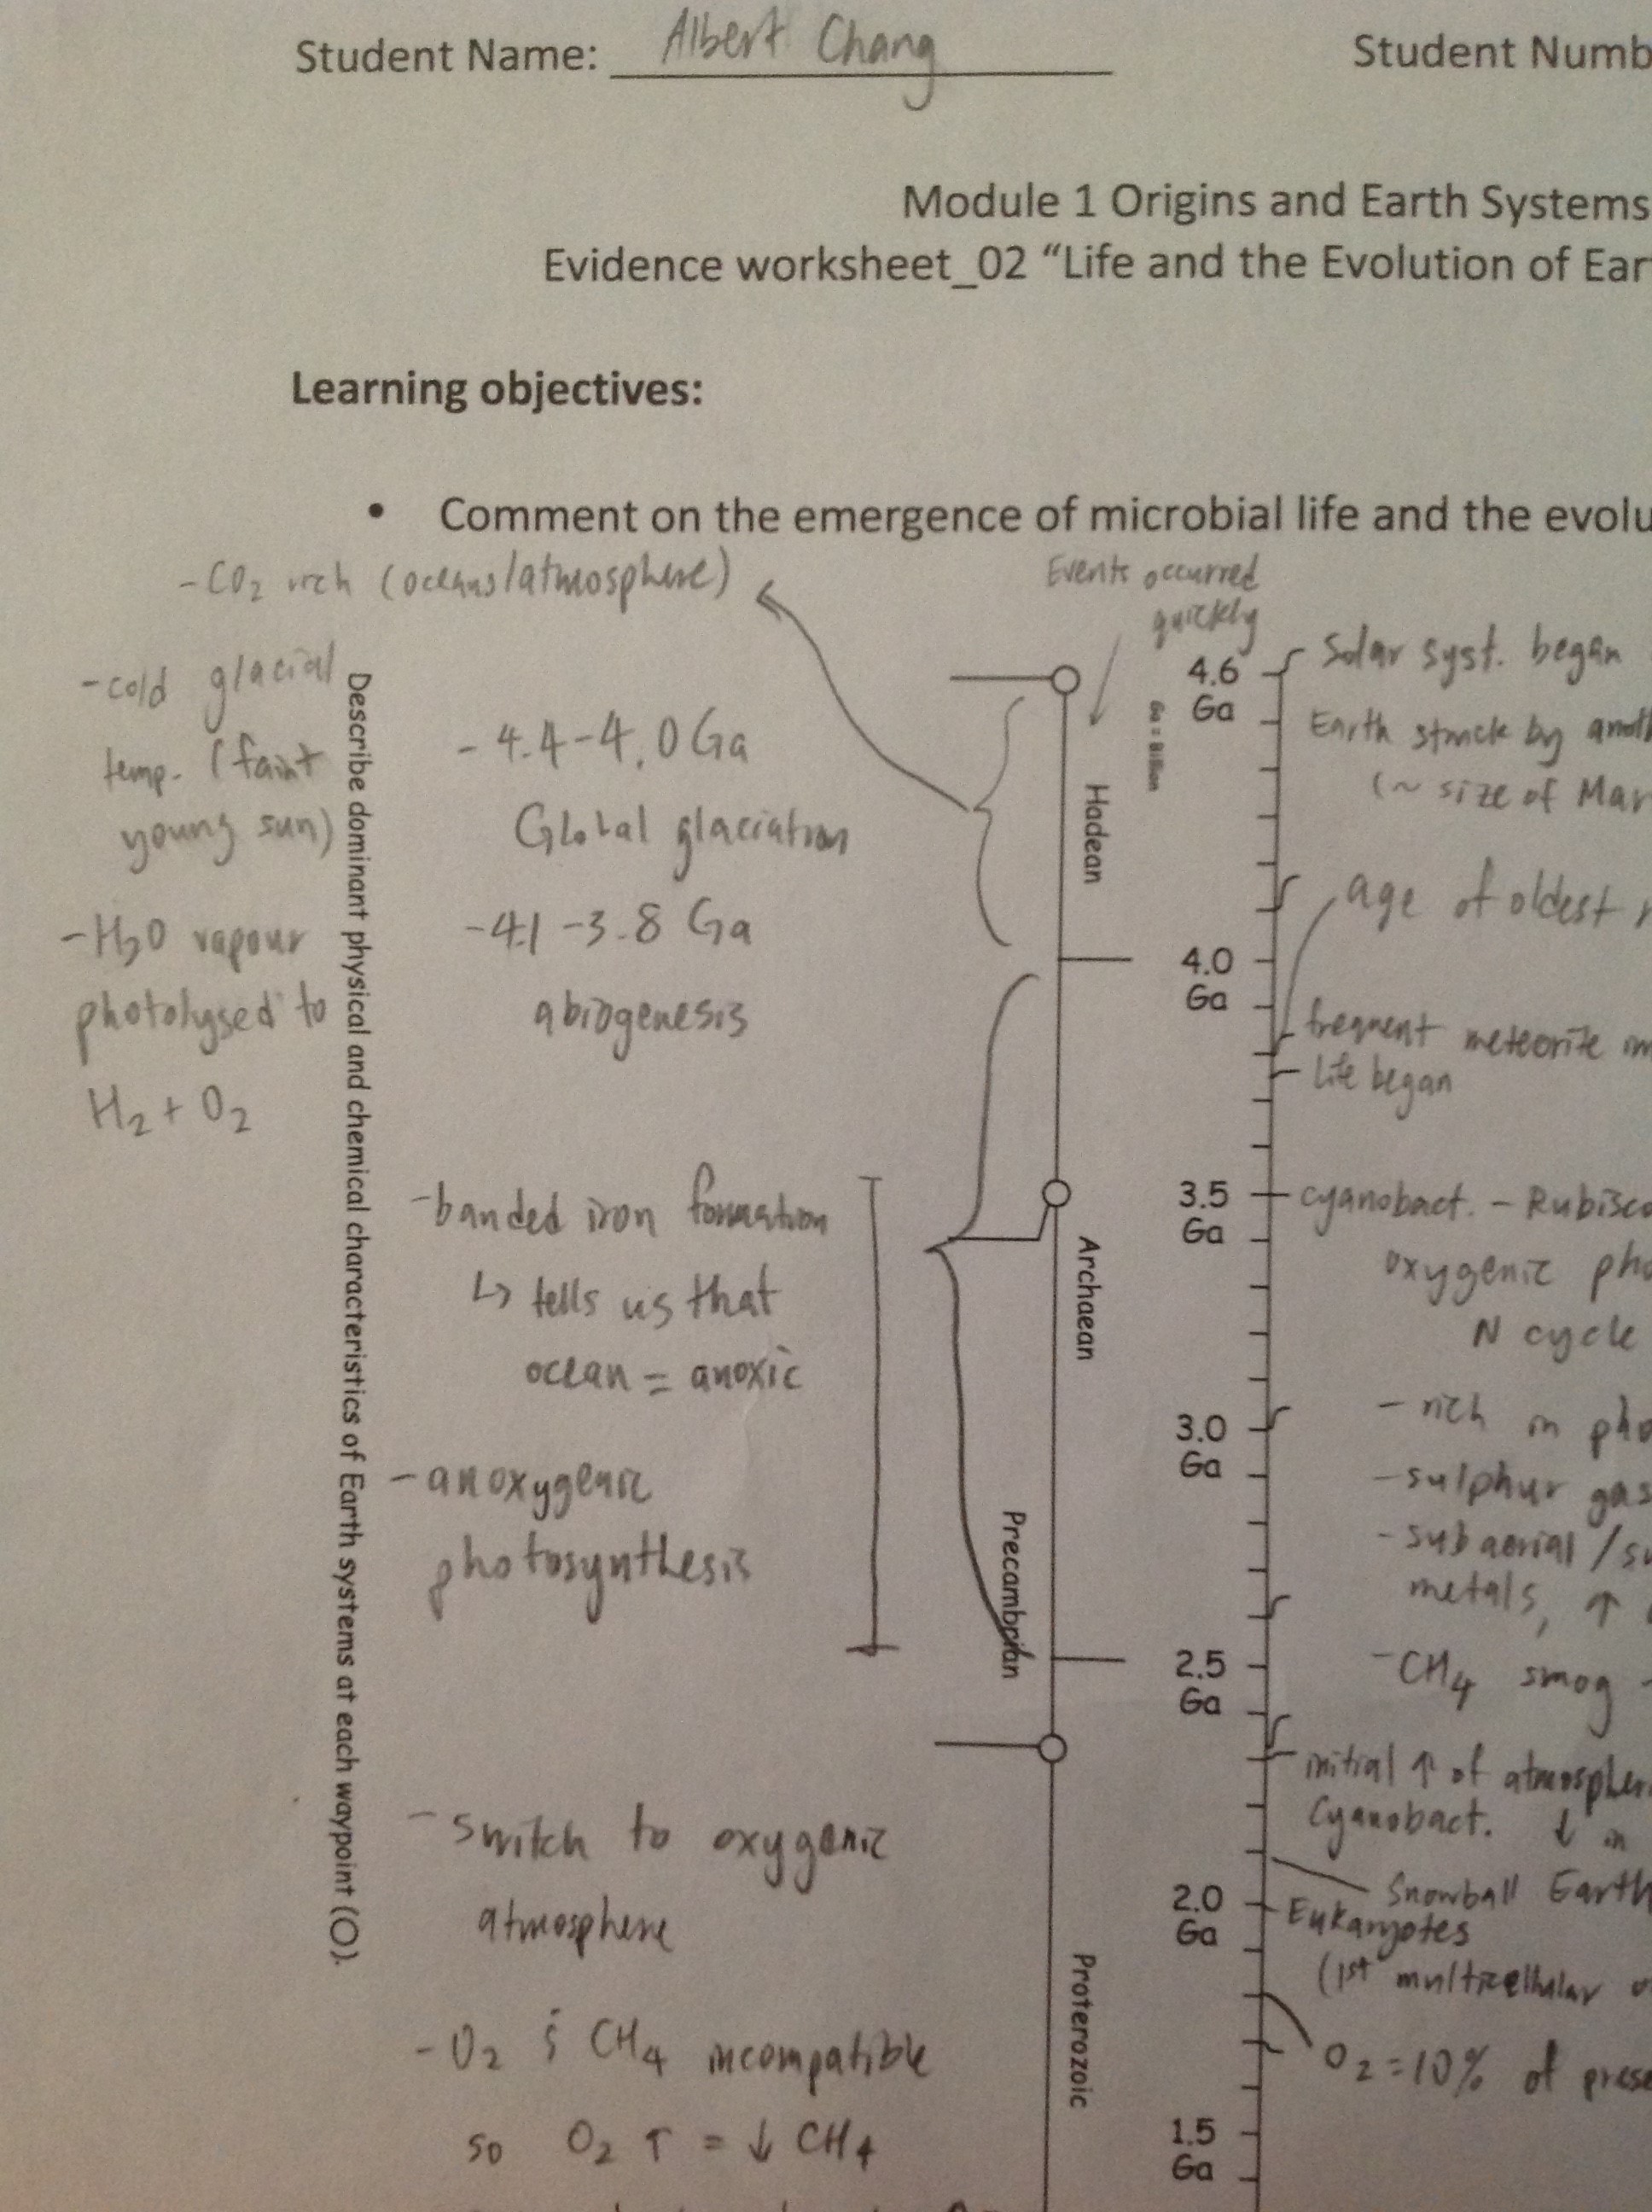 Student Name: Albert Chang
Student Numb
Module 1 Origins and Earth Systems
Evidence worksheet_02 “Life and the Evolution of Ear
Learning objectives:
• Comment on the emergence of microbial life and the evolu
- CO2 rich (oceans/atmosphere)
Events occurred
quickly
- cold glacial
temp. (faint
young sun)
- H2O vapour
photolysed to
H2 + O2
Describe dominant physical and chemical characteristics of Earth systems at each waypoint (O).
- 4.4-4.0 Ga
Global glaciation
- 4.1 - 3.8 Ga
abiogenesis
- banded iron formation
↳ tells us that
ocean = anoxic
- anoxygenic
photosynthesis
- switch to oxygenic
atmosphere
- O2 & CH4 incompatible
so O2 ↑ = ↓ CH4
Hadean
Archaean
Precambrian
Proterozoic
Ga = Billion
4.6
Ga
4.0
Ga
3.5
Ga
3.0
Ga
2.5
Ga
2.0
Ga
1.5
Ga
Solar syst. began
Earth struck by anoth
(~ size of Mar
age of oldest
frequent meteorite im
life began
cyanobact. - Rubisco
oxygenic pho
N cycle
- rich in pho
- sulphur gas
- subaerial / su
metals, ↑
- CH4 smog -
initial ↑ of atmospher
Cyanobact. ↓ in
Snowball Earth
Eukaryotes
(1st multicellular o
O2 = 10% of prese